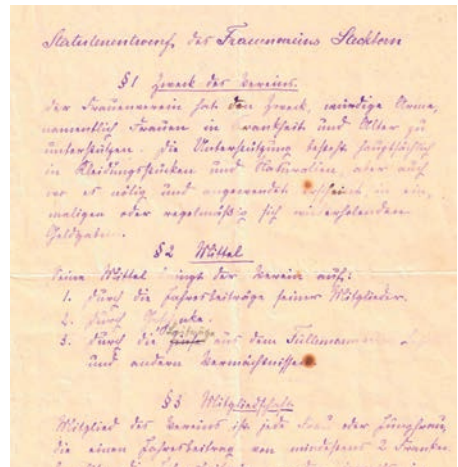 Statutenentwurf des Frauenvereins Steckborn
§ 1 Zweck des Vereins.
Der Frauenverein hat den Zweck, würdige Arme,
namentlich Frauen in Krankheit und Alter zu
unterstützen. Die Unterstützung besteht hauptsächlich
in Kleidungsstücken und Naturalien, aber auch
wo es nötig und angewendet erscheint in ein-
maligen oder regelmäßig sich wiederholenden
Geldgaben.
§ 2 Mittel
Seine Mittel bringt der Verein auf:
1. Durch die Jahresbeiträge seiner Mitglieder.
2. Durch Geschenke.
3. Durch die Beiträge aus dem
und andern Vermächtnissen
§ 3 Mitgliedschaft
Mitglied des Vereins ist jede Frau oder Jungfrau,
die einen Jahresbeitrag von mindestens 2 Franken